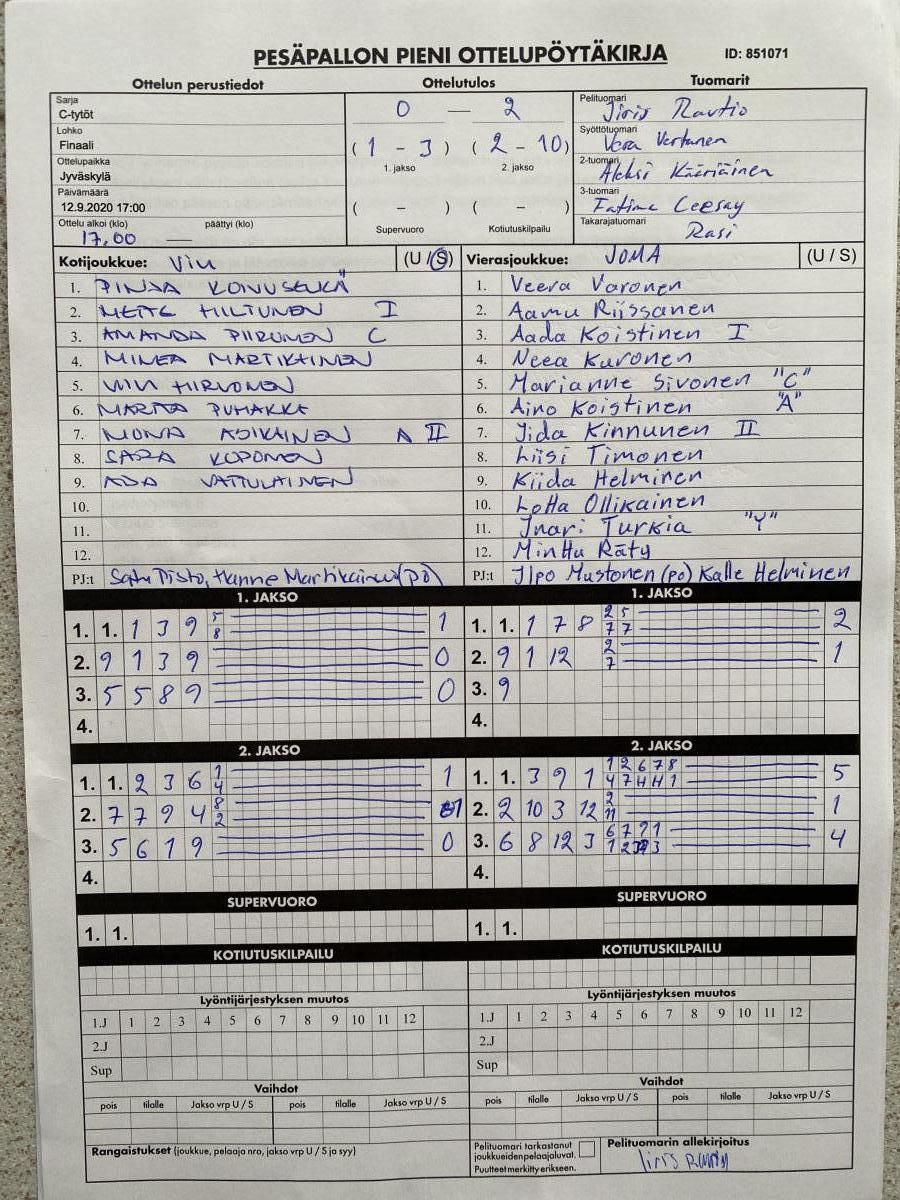 PESÄPALLON PIENI OTTELUPÖYTÄKIRJA
ID: 851071
Ottelun perustiedot
Ottelutulos
Tuomarit
Sarja
C-tytöt
Lohko
Finaali
Ottelupaikka
Jyväskylä
Päivämäärä
12.9.2020 17:00
Ottelu alkoi (klo) päättyi (klo)
17.00 —
0 — 2
( 1 - 3 ) ( 2 - 10 )
1. jakso 2. jakso
( - ) ( - )
Supervuoro Kotiutuskilpailu
Pelituomari
Iiris Rautio
Syöttötuomari
Vera Vertanen
2-tuomari
Aleksi Kääriäinen
3-tuomari
Fatima Ceesay
Takarajatuomari
Rasi
Kotijoukkue: ViU (U / S)
1. PINJA
2. METTE HILTUNEN I
3. AMANDA PIIRONEN C
4. MINEA MARTIKAINEN
5. VIIVI HIRVONEN
6. MARITA PUHAKKA
7. MONA ASIKAINEN A II
8. SARA KOPONEN
9. ADA VATTULAINEN
10.
11.
12.
PJ:t Satu Tisto, Hanne Martikainen (pö)
Vierasjoukkue: JOMA (U / S)
1. Veera Varonen
2. Aamu Riissanen
3. Aada Koistinen I
4. Neea Kuronen
5. Marianne Sivonen "C"
6. Aino Koistinen "A"
7. Iida Kinnunen II
8. Liisi Timonen
9. Kiida Helminen
10. Lotta Ollikainen
11. Inari Turkia "Y"
12. Minttu Räty
PJ:t Ilpo Mustonen (pö) Kalle Helminen
1. JAKSO
1. 1. 1 3 9 5 8 1
2. 9 1 3 9 0
3. 5 5 8 9 0
4.
1. JAKSO
1. 1. 1 7 8 2 5 7 7 2
2. 9 1 12 2 7 1
3. 9
4.
2. JAKSO
1. 1. 2 3 6 1 4 1
2. 7 7 9 4 8 2 1
3. 5 6 1 9 0
4.
2. JAKSO
1. 1. 3 9 1 1 2 6 7 8 5
2. 2 10 3 12 2 11 1
3. 6 8 12 3 6 7 9 1 4
4.
SUPERVUORO
1. 1.
SUPERVUORO
1. 1.
KOTIUTUSKILPAILU
KOTIUTUSKILPAILU
Lyöntijärjestyksen muutos
1.J 1 2 3 4 5 6 7 8 9 10 11 12
2.J
Sup
Lyöntijärjestyksen muutos
1.J 1 2 3 4 5 6 7 8 9 10 11 12
2.J
Sup
Vaihdot
pois tilalle Jakso vrp U / S pois tilalle Jakso vrp U / S
Vaihdot
pois tilalle Jakso vrp U / S pois tilalle Jakso vrp U / S
Rangaistukset (joukkue, pelaaja nro, jakso vrp U / S ja syy)
Pelituomari tarkastanut
joukkueiden pelaajaluvat.
Puutteet merkitty erikseen.
Pelituomarin allekirjoitus
Iiris Rautio